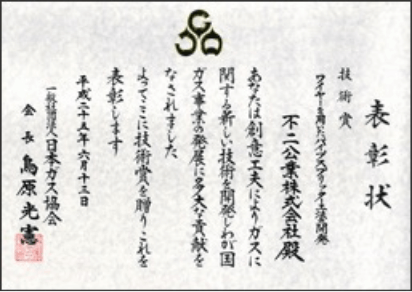 表彰状
技術賞
ワイヤーを用いたパイプスプリッター工法開発
不二公業株式会社殿
あなたは創意工夫によりガスに
関する新しい技術を開発しわが国
ガス事業の発展に多大な貢献を
なされました
よってここに技術賞を贈りこれを
表彰します
平成二十五年六月十三日
一般社団法人日本ガス協会
会長 鳥原光憲